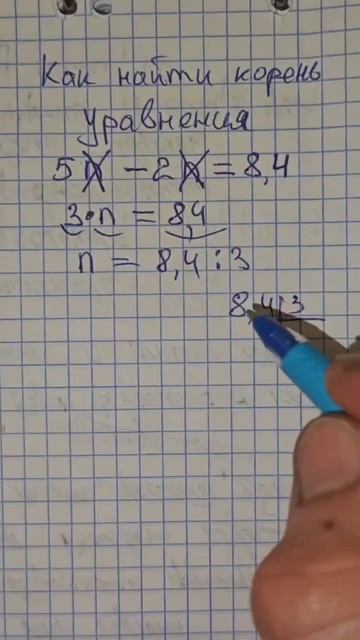 Как найти корень
уравнения
5n − 2n = 8,4
3·n = 8,4
n = 8,4 : 3
8,4 3